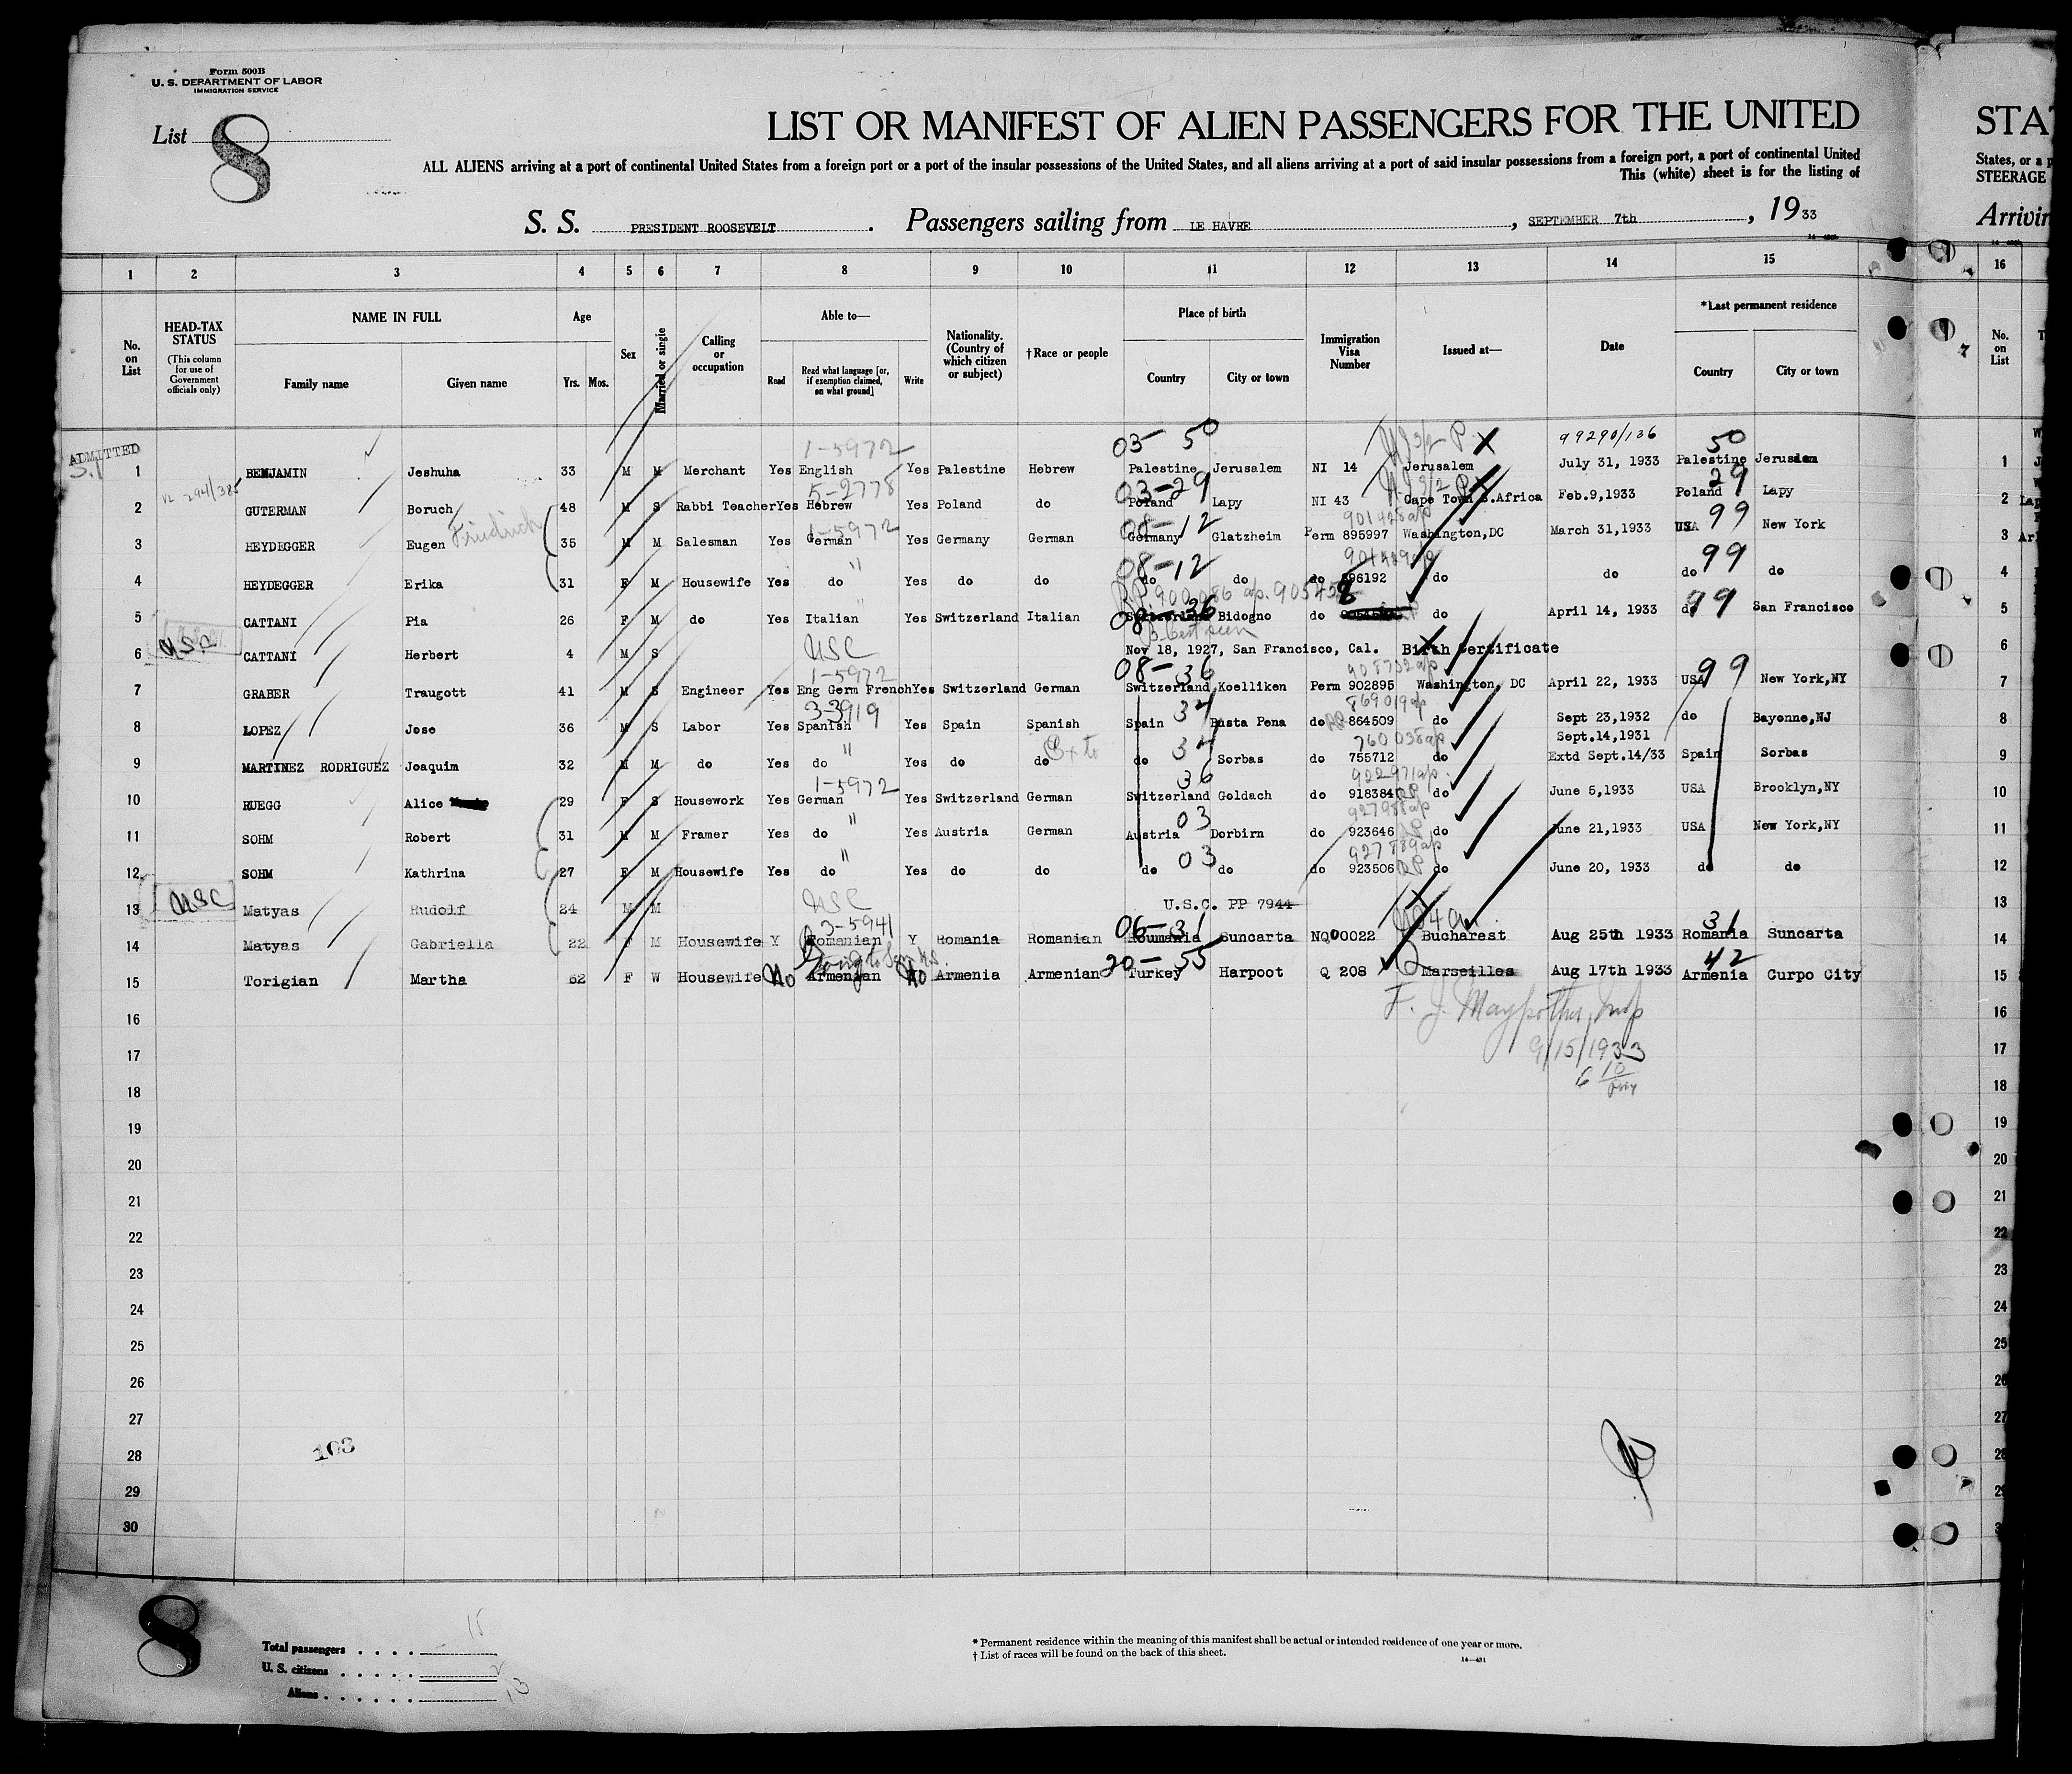 Form 500B
U. S. DEPARTMENT OF LABOR
IMMIGRATION SERVICE
List 8
LIST OR MANIFEST OF ALIEN PASSENGERS FOR THE UNITED
STA
ALL ALIENS arriving at a port of continental United States from a foreign port or a port of the insular possessions of the United States, and all aliens arriving at a port of said insular possessions from a foreign port, a port of continental United
States, or a p
This (white) sheet is for the listing of
STEERAGE
S. S. PRESIDENT ROOSEVELT . Passengers sailing from LE HAVRE , SEPTEMBER 7th , 1933
Arrivin
1 2 3 4 5 6 7 8 9 10 11 12 13 14 15 16
No. on List
HEAD-TAX STATUS
(This column for use of Government officials only)
NAME IN FULL
Family name Given name
Age
Yrs. Mos.
Sex
Married or single
Calling or occupation
Able to—
Read
Read what language [or, if exemption claimed, on what ground]
Write
Nationality. (Country of which citizen or subject)
†Race or people
Place of birth
Country City or town
Immigration Visa Number
Issued at—
Date
*Last permanent residence
Country City or town
No. on List
ADMITTED
1-5972 03- 50 99290/136 50
1 BENJAMIN Jeshuha 33 M M Merchant Yes English Yes Palestine Hebrew Palestine Jerusalem NI 14 Jerusalem July 31, 1933 Palestine Jerusalem 1
5-2778 03-29 29
2 GUTERMAN Boruch 48 M S Rabbi Teacher Yes Hebrew Yes Poland do Poland Lapy NI 43 Cape Town S.Africa Feb.9,1933 Poland Lapy 2
Friedrich 1-5972 08-12 99
3 HEYDEGGER Eugen 35 M M Salesman Yes German Yes Germany German Germany Glatzheim Perm 895997 Washington,DC March 31,1933 USA New York 3
" 08-12 99
4 HEYDEGGER Erika 31 F M Housewife Yes do Yes do do do do do 896192 do do do do 4
08-36 99
5 CATTANI Pia 26 F M do Yes Italian Yes Switzerland Italian Switzerland Bidogno do do April 14, 1933 do San Francisco 5
USC USC
6 CATTANI Herbert 4 M S Nov 18, 1927, San Francisco, Cal. Birth Certificate 6
1-5972 08-36 908732 a/p 99
7 GRABER Traugott 41 M S Engineer Yes Eng Germ French Yes Switzerland German Switzerland Koelliken Perm 902895 Washington, DC April 22, 1933 USA New York,NY 7
3-3919 34 869019 a/p
8 LOPEZ Jose 36 M S Labor Yes Spanish Yes Spain Spanish Spain Basta Pena do 864509 do Sept 23,1932 do Bayonne,NJ 8
" 34 760038 a/p Sept.14,1931
9 MARTINEZ RODRIGUEZ Joaquim 32 M M do Yes do Yes do do do Sorbas do 755712 do Extd Sept.14/33 Spain Sorbas 9
1-5972 36 922971 a/p
10 RUEGG Alice 29 F S Housework Yes German Yes Switzerland German Switzerland Goldach do 918384 do June 5,1933 USA Brooklyn,NY 10
" 03 927988 a/p
11 SOHM Robert 31 M M Framer Yes do Yes Austria German Austria Dorbirn do 923646 do June 21,1933 USA New York,NY 11
" 03 927889 a/p
12 SOHM Kathrina 27 F M Housewife Yes do Yes do do do do do 923506 do June 20, 1933 do do 12
USC USC
13 Matyas Rudolf 24 M M U.S.C. PP 7944 13
3-5941 06-31 31
14 Matyas Gabriella 22 F M Housewife Y Romanian Y Romania Romanian Roumania Suncarta NQ00022 Bucharest Aug 25th 1933 Romania Suncarta 14
20-55 42
15 Torigian Martha 62 F W Housewife No Armenian No Armenia Armenian Turkey Harpoot Q 208 Marseilles Aug 17th 1933 Armenia Curpo City 15
16 16
17 9/15/1933 17
18 18
19 19
20 20
21 21
22 22
23 23
24 24
25 25
26 26
27 27
103
28 28
29 29
30
8
Total passengers . . . . 15
U. S. citizens . . . . . 2
Aliens . . . . . . 13
* Permanent residence within the meaning of this manifest shall be actual or intended residence of one year or more.
† List of races will be found on the back of this sheet.
14—431